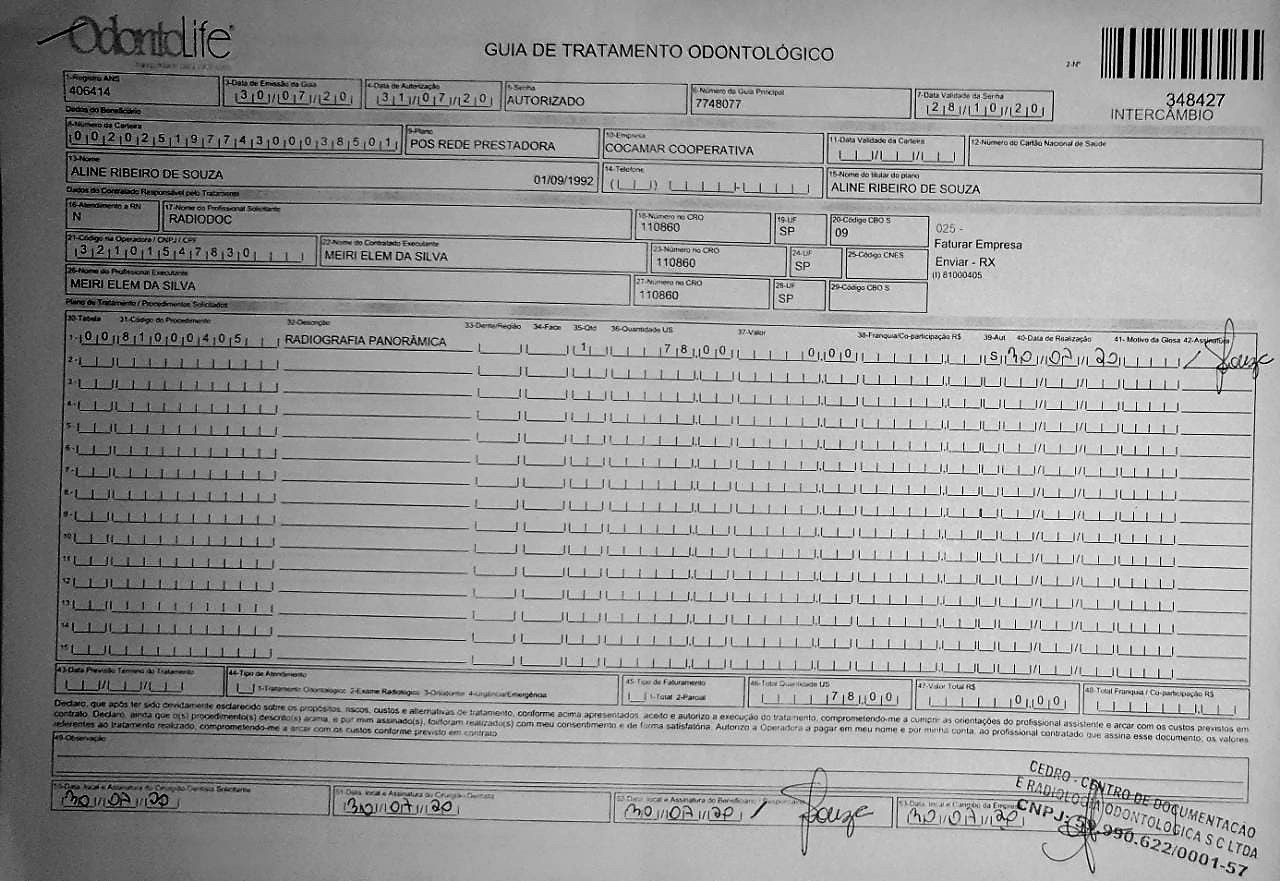 OdontoLife
GUIA DE TRATAMENTO ODONTOLÓGICO
2-Nº
348427
INTERCÂMBIO
1-Registro ANS
406414
3-Data de Emissão da Guia
30/07/20
4-Data de Autorização
31/07/20
5-Senha
AUTORIZADO
6-Número da Guia Principal
7748077
7-Data Validade da Senha
28/10/20
Dados do Beneficiário
8-Número da Carteira
00202519774300038501
9-Plano
POS REDE PRESTADORA
10-Empresa
COCAMAR COOPERATIVA
11-Data Validade da Carteira
12-Número do Cartão Nacional de Saúde
13-Nome
ALINE RIBEIRO DE SOUZA 01/09/1992
14-Telefone
15-Nome do titular do plano
ALINE RIBEIRO DE SOUZA
Dados do Contratado Responsável pelo Tratamento
16-Atendimento a RN
N
17-Nome do Profissional Solicitante
RADIODOC
18-Número no CRO
110860
19-UF
SP
20-Código CBO S
09
025 -
Faturar Empresa
Enviar - RX
(I) 81000405
21-Código na Operadora / CNPJ / CPF
32101547830
22-Nome do Contratado Executante
MEIRI ELEM DA SILVA
23-Número no CRO
110860
24-UF
SP
25-Código CNES
26-Nome do Profissional Executante
MEIRI ELEM DA SILVA
27-Número no CRO
110860
28-UF
SP
29-Código CBO S
Plano de Tratamento / Procedimentos Solicitados
30-Tabela 31-Código do Procedimento 32-Descrição 33-Dente/Região 34-Face 35-Qtd 36-Quantidade US 37-Valor 38-Franquia/Co-participação R$ 39-Aut 40-Data de Realização 41- Motivo da Glosa 42-Assinatura
1- 00 81000405 RADIOGRAFIA PANORÂMICA 1 78,00 0,00 S 30/07/20 Souze
2-
3-
4-
5-
6-
7-
8-
9-
10
11
12
13
14
15
43-Data Previsão Término do Tratamento
44-Tipo de Atendimento
1-Tratamento Odontológico 2-Exame Radiológico 3-Ortodontia 4-Urgência/Emergência
45-Tipo de Faturamento
1-Total 2-Parcial
46-Total Quantidade US
78,00
47-Valor Total R$
0,00
48-Total Franquia / Co-participação R$
Declaro, que após ter sido devidamente esclarecido sobre os propósitos, riscos, custos e alternativas de tratamento, conforme acima apresentados, aceito e autorizo a execução do tratamento, comprometendo-me a cumprir as orientações do profissional assistente e arcar com os custos previstos em
contrato. Declaro, ainda que o(s) procedimento(s) descrito(s) acima, e por mim assinado(s), foi/foram realizado(s) com meu consentimento e de forma satisfatória. Autorizo a Operadora a pagar em meu nome e por minha conta, ao profissional contratado que assina esse documento, os valores
referentes ao tratamento realizado, comprometendo-me a arcar com os custos conforme previsto em contrato
49-Observação
50-Data, local e Assinatura do Cirurgião-Dentista Solicitante
30/07/20
51-Data, local e Assinatura do Cirurgião-Dentista
30/07/20
52-Data, local e Assinatura do Beneficiário / Responsável
30/07/20 / Souze
53-Data, local e Carimbo da Empresa
30/07/20
CEDRO - CENTRO DE DOCUMENTAÇÃO
E RADIOLOGIA ODONTOLÓGICA S C LTDA